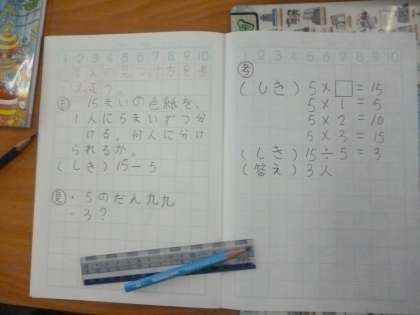 1 2 3 4 5 6 7 8 9 10
えよう。
15まいの色紙を、
1人に5まいずつ分
ける。何人に分け
られるか。
(しき) 15÷5
見 ・5のだん九九
・3?
1 2 3 4 5 6 7 8 9 10
考
(しき) 5×□=15
5×1=5
5×2=10
5×3=15
(しき) 15÷5=3
(答え) 3人